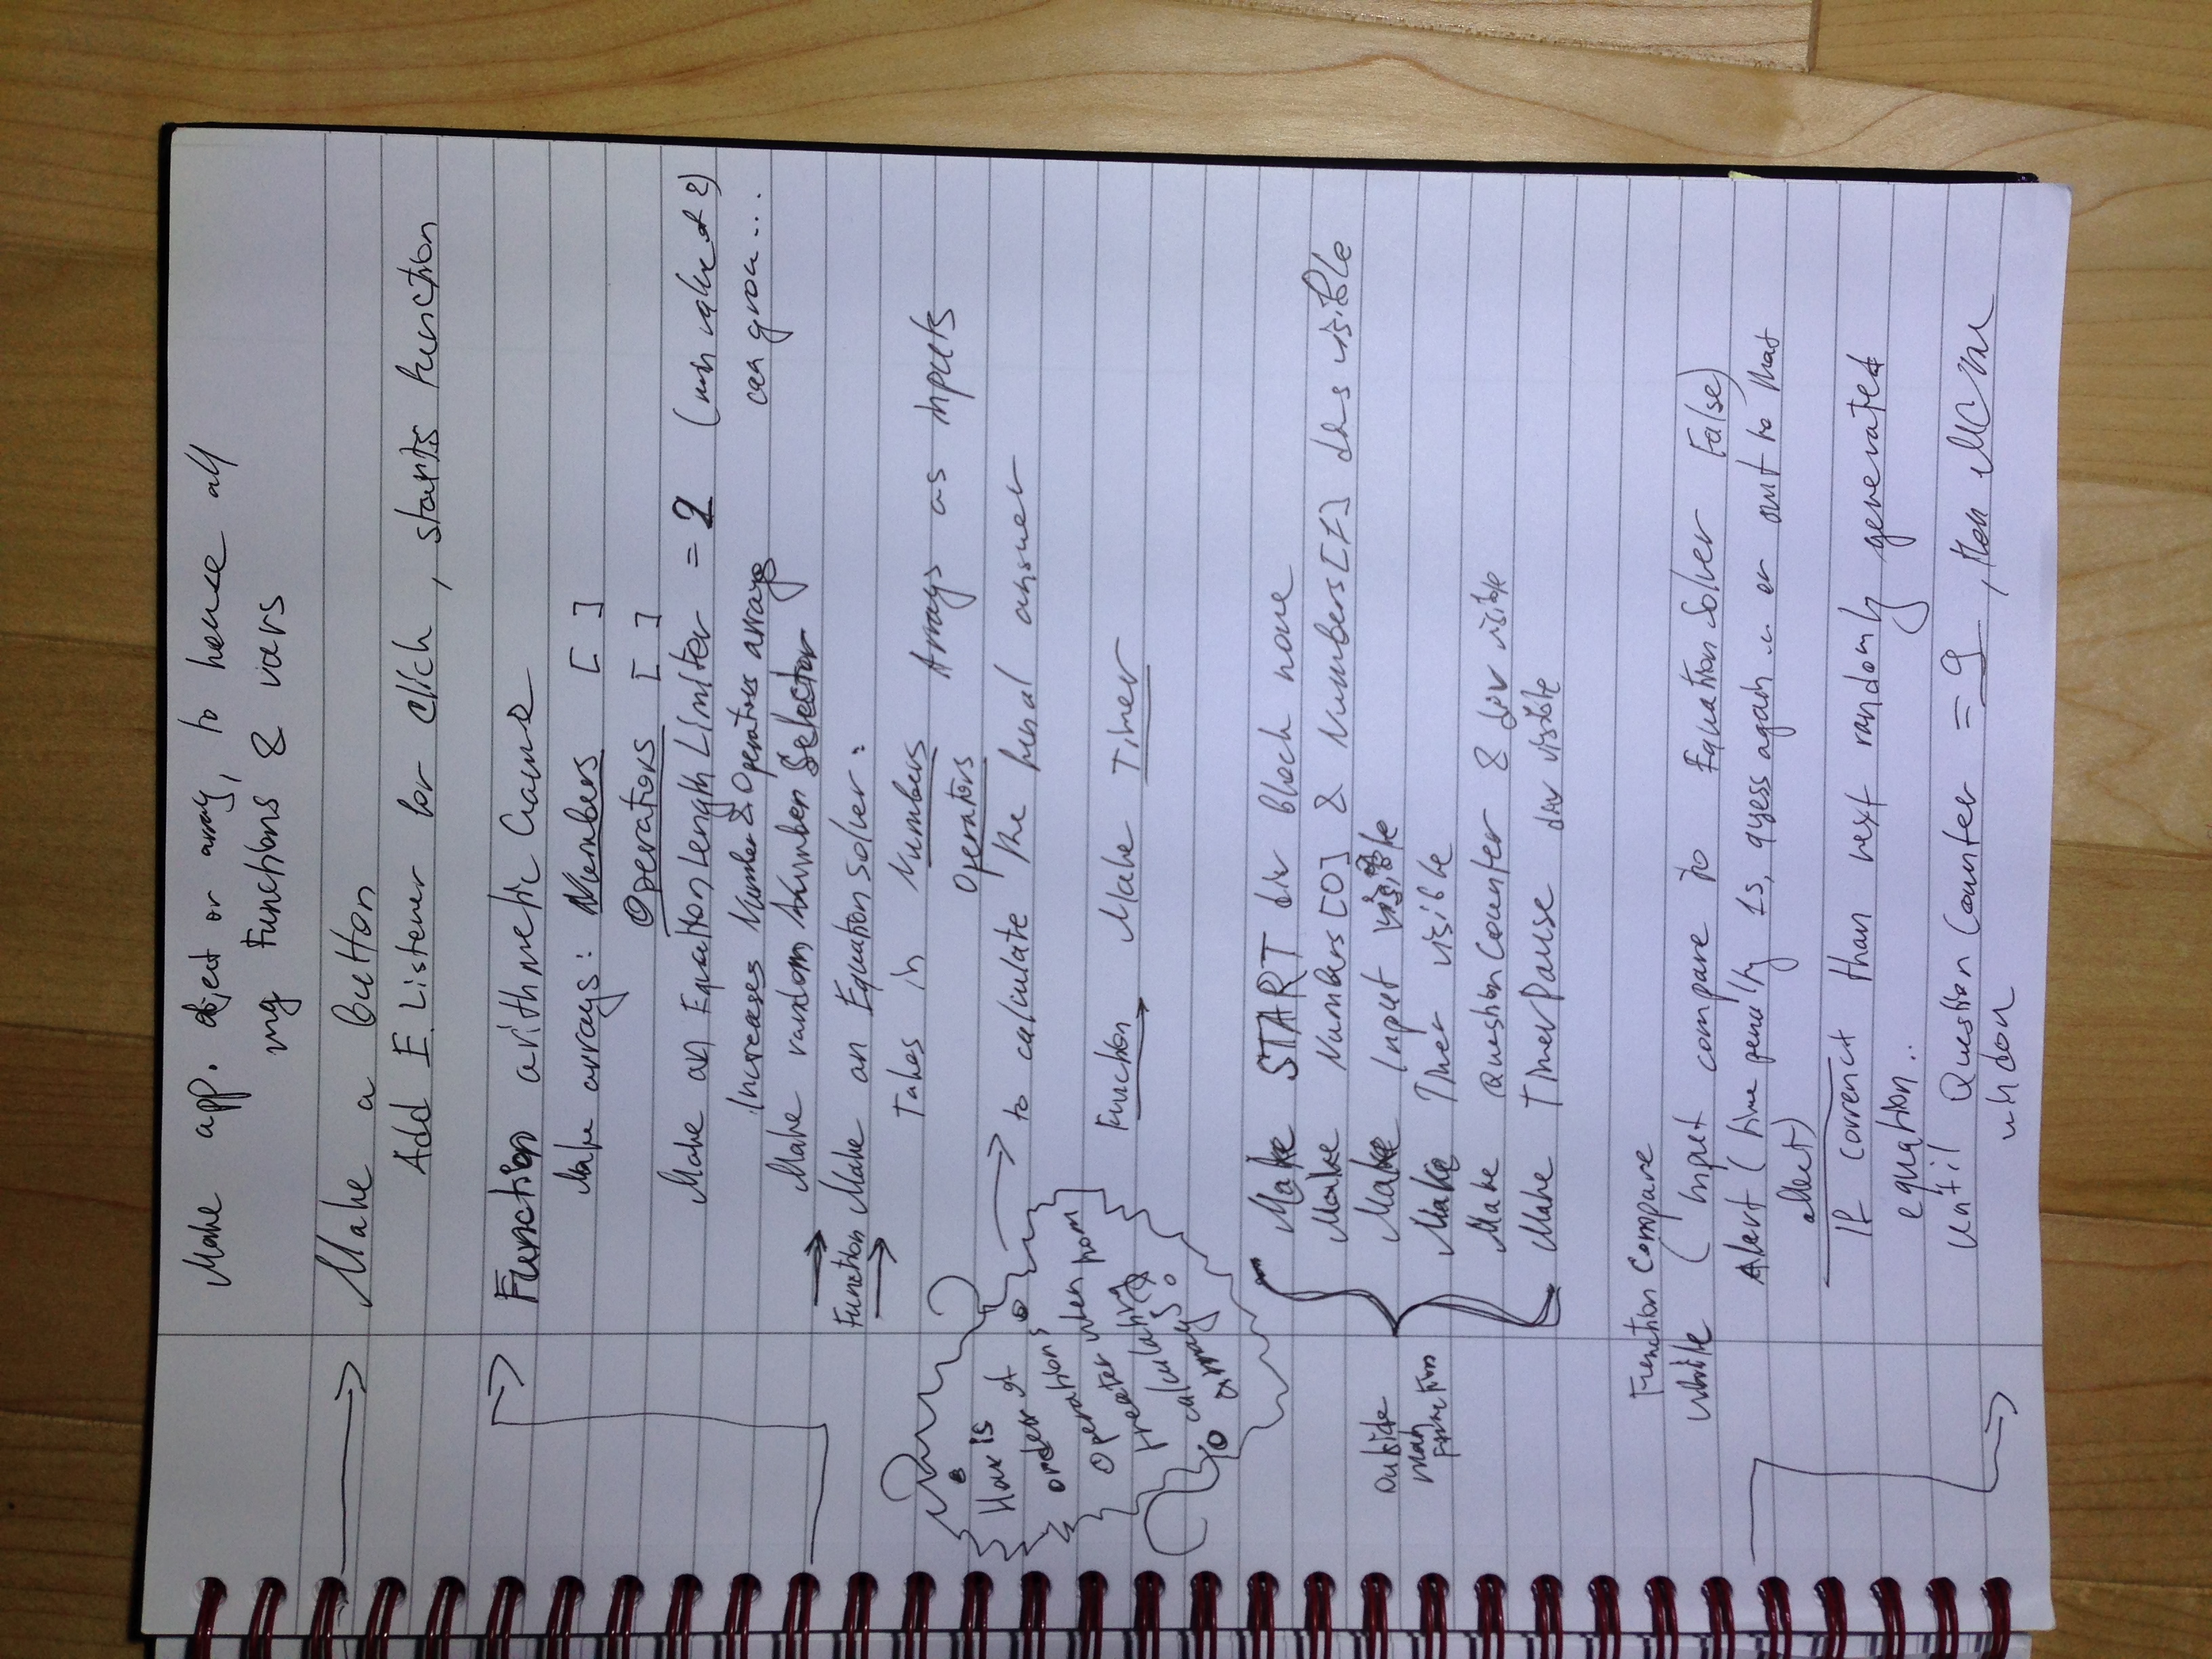 Make app. object or array, to house all
my Functions & vars
Make a Button
Add E. Listener for click, starts function
Function arithmetic Game
Make arrays: Numbers [ ]
Operators [ ]
Make an EquationLengthLimiter = 2 (min value of 2)
Increases Number & Operators arrays can grow...
Make random Number Selector
Function Make an Equation Solver:
Takes in Numbers Arrays as inputs
Operators
to calculate the final answer
How is
order of
Operations
treater when
calculating from
arrays?
Function Make Timer
Make START div Block none
Make Numbers[0] & Numbers[1] divs visible
Make Input visible
Make Timer visible
Make QuestionCounter & div visible
Make TimerPause div visible
Outside
main
Function
Function Compare
while (input compare to EquationSolver False)
Alert (time penalty 1s, guess again ... or smt to that
effect)
If correnct than next randomly generated
equation..
until Question Counter = 9, then
window